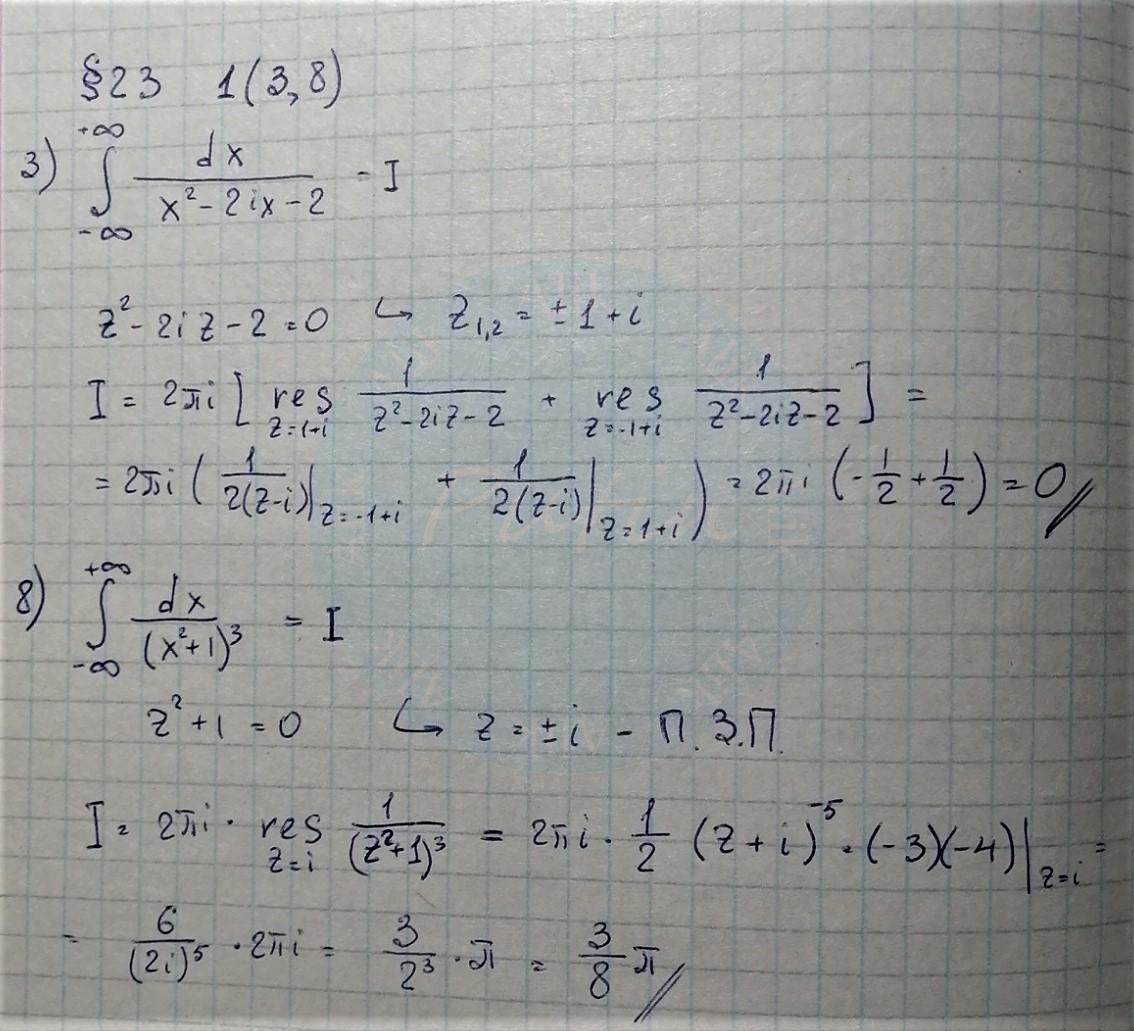 §23 1(3,8)
3) ∫_{-∞}^{+∞} dx/(x²-2ix-2) = I
z²-2iz-2=0 ↪ z_{1,2} = ±1+i
I = 2πi [ res_{z=1+i} 1/(z²-2iz-2) + res_{z=-1+i} 1/(z²-2iz-2) ] =
= 2πi ( 1/(2(z-i)) |_{z=-1+i} + 1/(2(z-i)) |_{z=1+i} ) = 2πi (-1/2 + 1/2) = 0 //
8) ∫_{-∞}^{+∞} dx/(x²+1)³ = I
z²+1=0 ↪ z = ±i - П.З.П.
I = 2πi · res_{z=i} 1/(z²+1)³ = 2πi · 1/2 (z+i)^{-5} · (-3)(-4) |_{z=i} =
= 6/(2i)⁵ · 2πi = 3/2³ · π = 3/8 π //